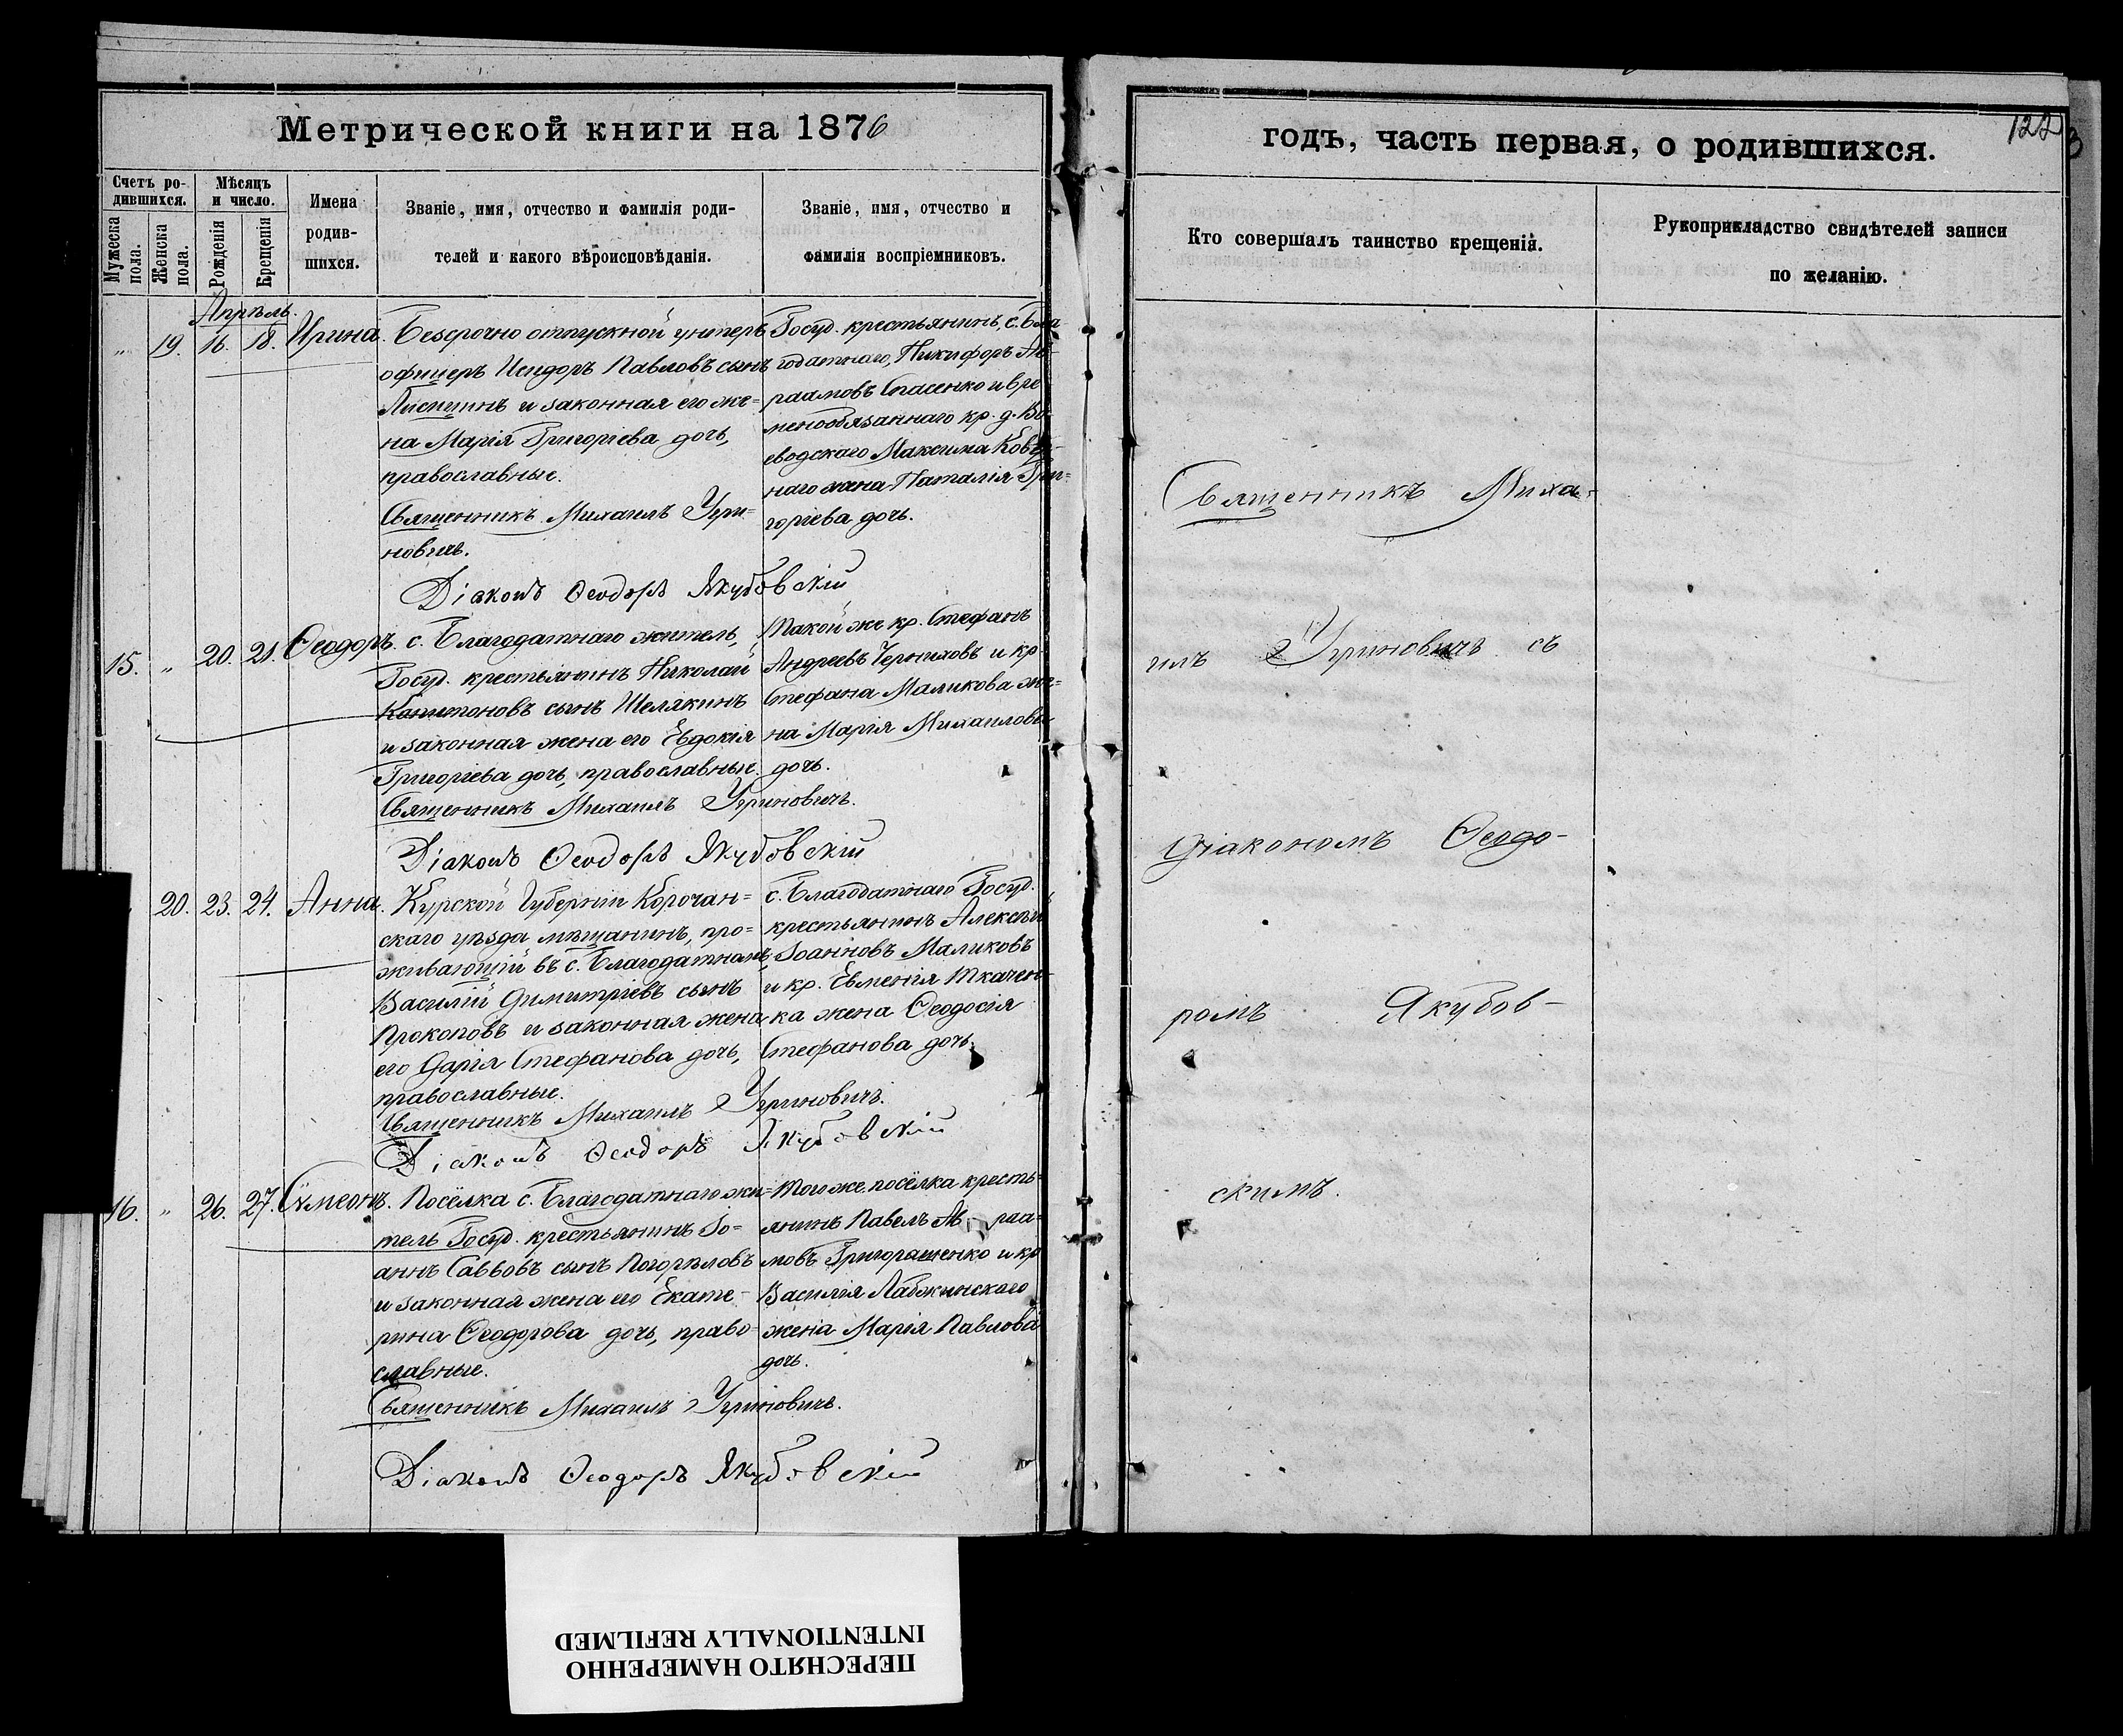 Метрической книги на 1876
Счетъ ро-
дившихся.
Мужеска пола.
Женска пола.
Мѣсяцъ
и число.
Рожденія
Крещенія
Имена
родив-
шихся.
Званіе, имя, отчество и фамилія роди-
телей и какого вѣроисповѣданія.
Званіе, имя, отчество и
фамилія воспріемниковъ.
Апрѣль.
„ 19. 16. 18. Ирина.
Безсрочно отпускной унтеръ
офицеръ Исидоръ Павловъ сынъ
и законная его же-
на Марія Григоріева дочь,
православные.
Священникъ Михаилъ Угри-
новичъ.
Діаконъ Ѳеодоръ Якубовскій
Госуд. крестьянинъ, с. Бла
годатнаго, Никифоръ Ав-
раамовъ Спасенко и вре
меннообязаннаго кр. д. Во
еводскаго Максима
наго жена Наталія Гри-
горіева дочь.
15. „ 20. 21. Ѳеодоръ.
с. Благодатнаго житель,
Госуд. крестьянинъ Николай
Капитоновъ сынъ Шелякинъ
и законная жена его Евдокія
Григоріева дочь, православные.
Священникъ Михаилъ Угриновичъ.
Діаконъ Ѳеодоръ Якубовскій
Такой же кр. Стефанъ
Андреевъ Черниховъ и кр
Стефана Маликова же-
на Марія Михаилова
дочь.
20. 23. 24. Анна.
Курской Губерніи Корочан-
скаго уѣзда мѣщанинъ, про-
живающій въ с. Благодатномъ,
Василій Димитріевъ сынъ
Прокоповъ и законная жена
его Дарія Стефанова дочь,
православные.
Священникъ Михаилъ Угриновичъ.
Діаконъ Ѳеодоръ Якубовскій
с. Благодатнаго Госуд.
крестьянинъ Алексѣй
Іоанновъ Маликовъ
и кр. Евменія Ткачен-
ка жена Ѳеодосія
Стефанова дочь.
16. „ 26. 27. Сѵмеонъ.
Посёлка с. Благодатнаго жи-
тель Госуд. крестьянинъ Іо-
аннъ Саввовъ сынъ Погорѣловъ
и законная жена его Екате-
рина Ѳеодорова дочь, право-
славные.
Священникъ Михаилъ Угриновичъ.
Діаконъ Ѳеодоръ Якубовскій
Того же посёлка кресть-
янинъ Павелъ Ав раа-
мовъ Григорашенко и кр
Василія Лабжинскаго
жена Марія Павлова
дочь.
годъ, часть первая, о родившихся.
Кто совершалъ таинство крещенія.
Рукоприкладство свидѣтелей записи
по желанію.
Священникъ Миха-
илъ Угриновичъ съ
діакономъ Ѳеодо-
ромъ Якубов-
скимъ.
ПЕРЕСНЯТО НАМЕРЕННО
INTENTIONALLY REFILMED